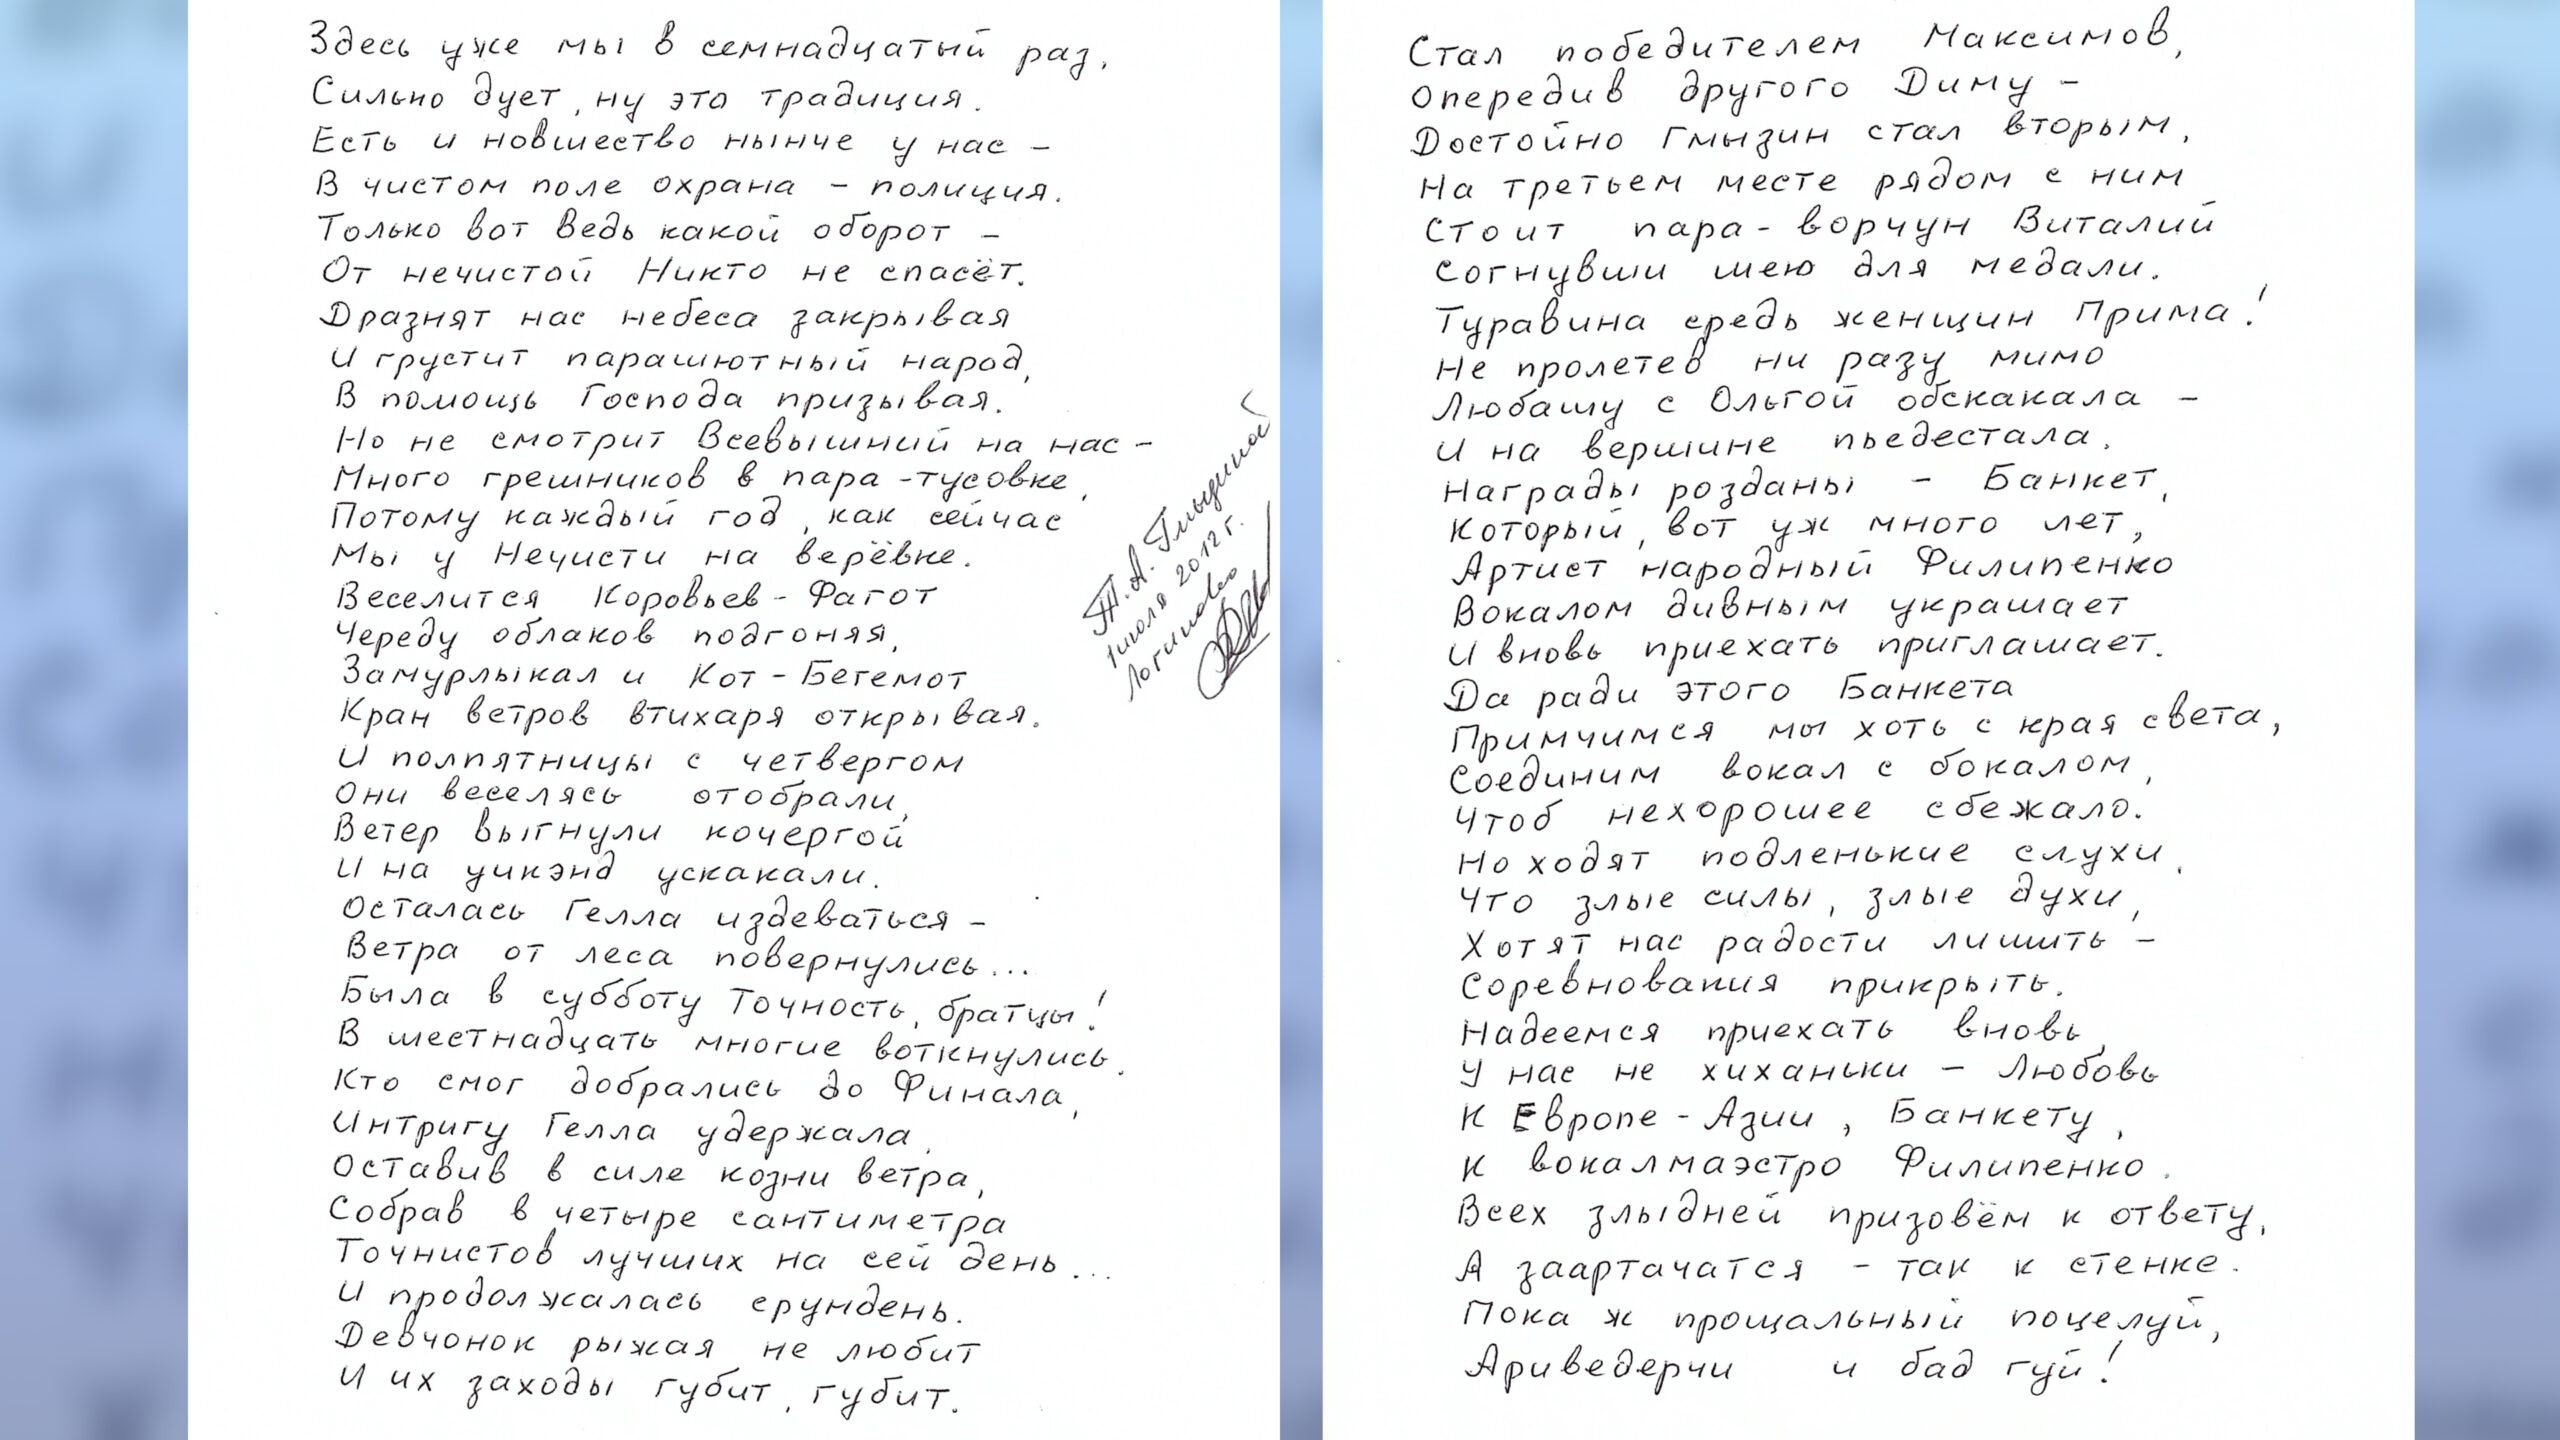 Здесь уже мы в семнадцатый раз,
Сильно дует, ну это традиция.
Есть и новшество нынче у нас –
В чистом поле охрана – полиция.
Только вот ведь какой оборот –
От нечистой Никто не спасёт.
Дразнят нас небеса закрывая
И грустит парашютный народ,
В помощь Господа призывая.
Но не смотрит Всевышний на нас –
Много грешников в пара-тусовке,
Потому каждый год, как сейчас
Мы у Нечисти на верёвке.
Веселится Коровьев-Фагот
Череду облаков подгоняя,
Замурлыкал и Кот-Бегемот
Кран ветров втихаря открывая.
И полпятницы с четвергом
Они веселясь отобрали,
Ветер выгнули кочергой
И на уикэнд ускакали.
Осталась Гелла издеваться –
Ветра от леса повернулись...
Была в субботу Точность, братцы!
В шестнадцать многие воткнулись.
Кто смог добрались до Финала,
Интригу Гелла удержала,
Оставив в силе козни ветра,
Собрав в четыре сантиметра
Точнистов лучших на сей день...
И продолжалась ерундень.
Девчонок рыжая не любит
И их заходы губит, губит.
1 июля 2012 г.
Логиново
Стал победителем Максимов,
Опередив другого Диму –
Достойно Гмызин стал вторым,
На третьем месте рядом с ним
Стоит пара-ворчун Виталий
Согнувши шею для медали.
Туравина средь женщин Прима!
Не пролетев ни разу мимо
Любашу с Ольгой обскакала –
И на вершине пьедестала.
Награды розданы – Банкет,
Который, вот уж много лет,
Артист народный Филипенко
Вокалом дивным украшает
И вновь приехать приглашает.
Да ради этого Банкета
Примчимся мы хоть с края света,
Соединим вокал с бокалом,
Чтоб нехорошее сбежало.
Но ходят подленькие слухи,
Что злые силы, злые духи,
Хотят нас радости лишить –
Соревнования прикрыть.
Надеемся приехать вновь,
У нас не хиханьки – Любовь
К Европе-Азии, Банкету,
К вокалмаэстро Филипенко.
Всех злыдней призовём к ответу,
А заартачатся – так к стенке.
Пока ж прощальный поцелуй,
Ариведерчи и бад гуй!